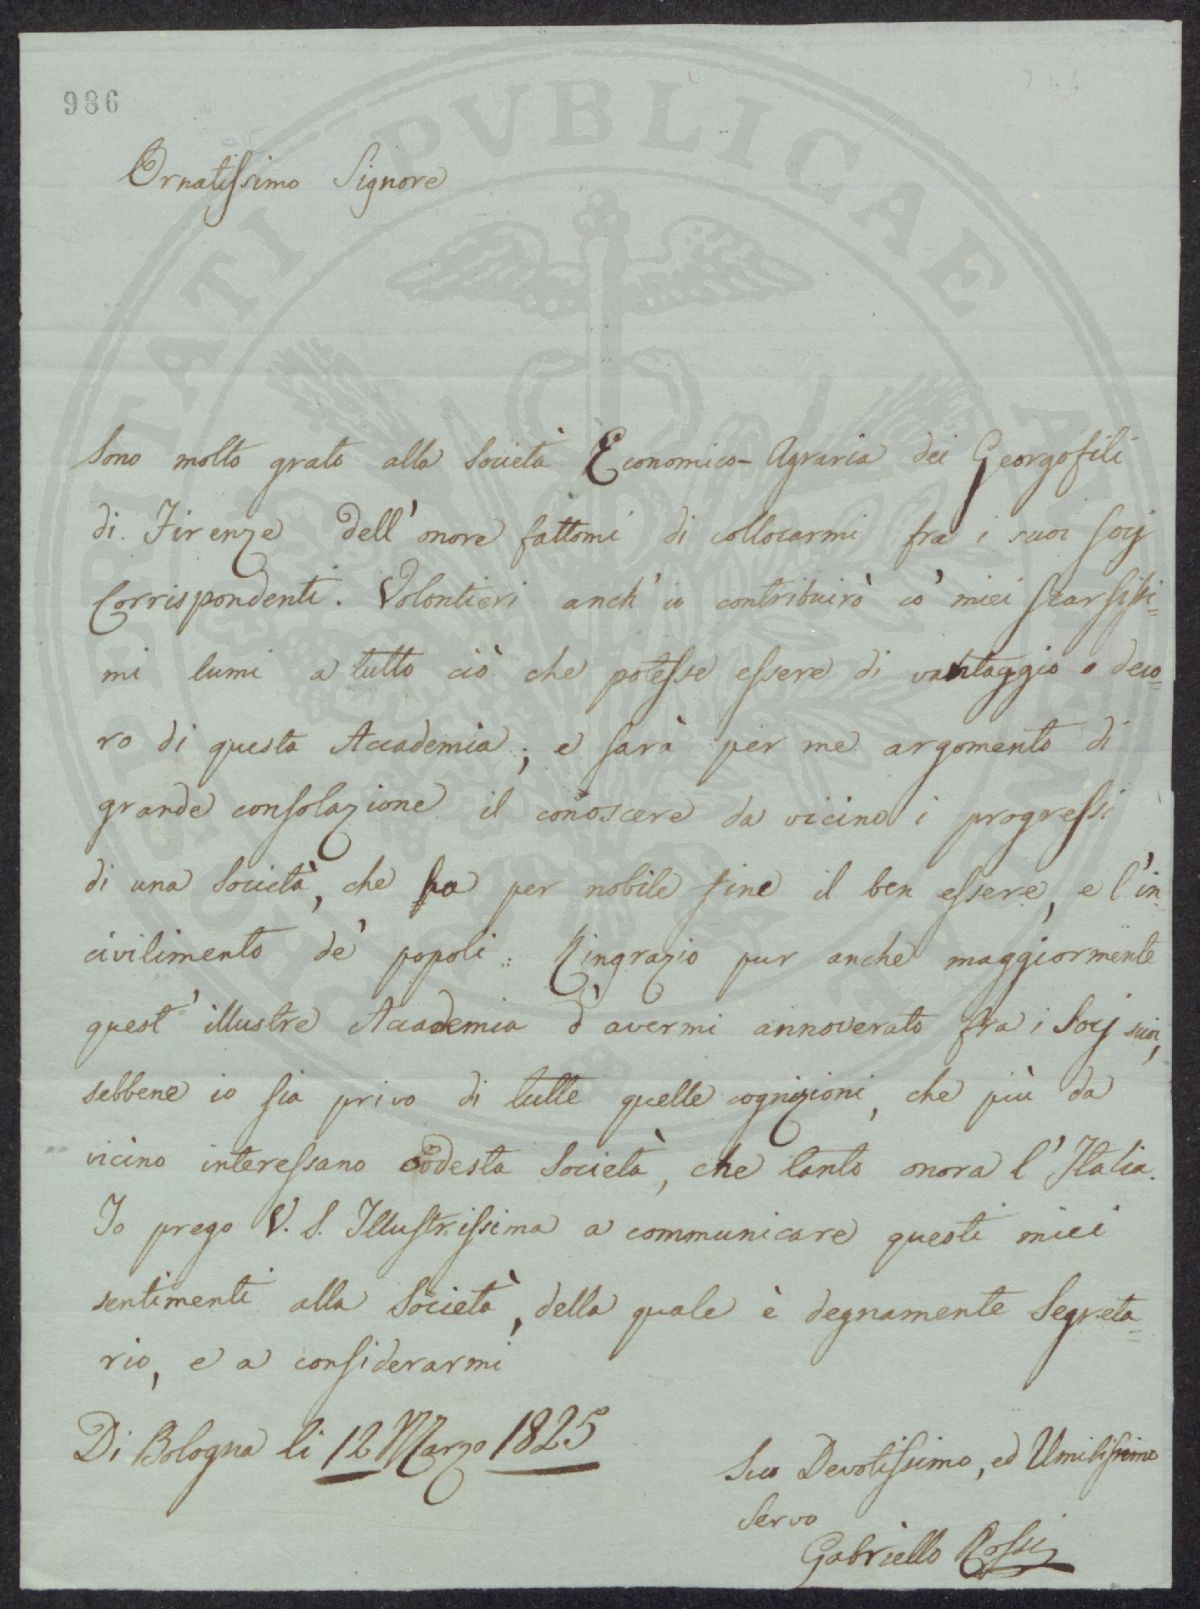 986
Ornatissimo Signore
Sono molto grato alla Società Economico-Agraria dei Georgofili
di Firenze dell'onore fattomi di collocarmi fra i suoi Socj
Corrispondenti. Volontieri anch'io contribuirò co' miei scarsissi=
mi lumi a tutto ciò che potesse essere di vantaggio o deco=
ro di questa Accademia; e sarà per me argomento di
grande consolazione il conoscere da vicino i progressi
di una Società, che ha per nobile fine il ben essere, e l'in=
civilimento de' popoli. Ringrazio pur anche maggiormente
quest'illustre Accademia d'avermi annoverato fra i Socj suoi,
sebbene io sia privo di tutte quelle cognizioni, che più da
vicino interessano codesta Società, che tanto onora l'Italia.
Io prego V. S. Illustrissima a communicare questi miei
sentimenti alla Società, della quale è degnamente Segreta=
rio, e a considerarmi
Di Bologna li 12 Marzo 1825
Suo Devotissimo, ed Umilissimo
Servo
Gabriello Rossi
PROSPERITATI PUBLICAE AUGENDAE